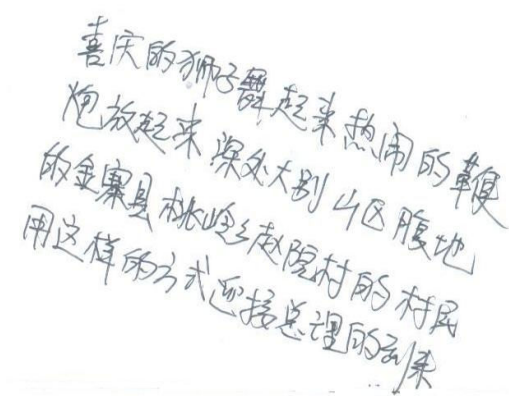 喜庆的狮子舞起来热闹的鞭
炮放起来深处大别山区腹地
的金寨县桃岭乡赵院村的村民
用这样的方式迎接总理的到来